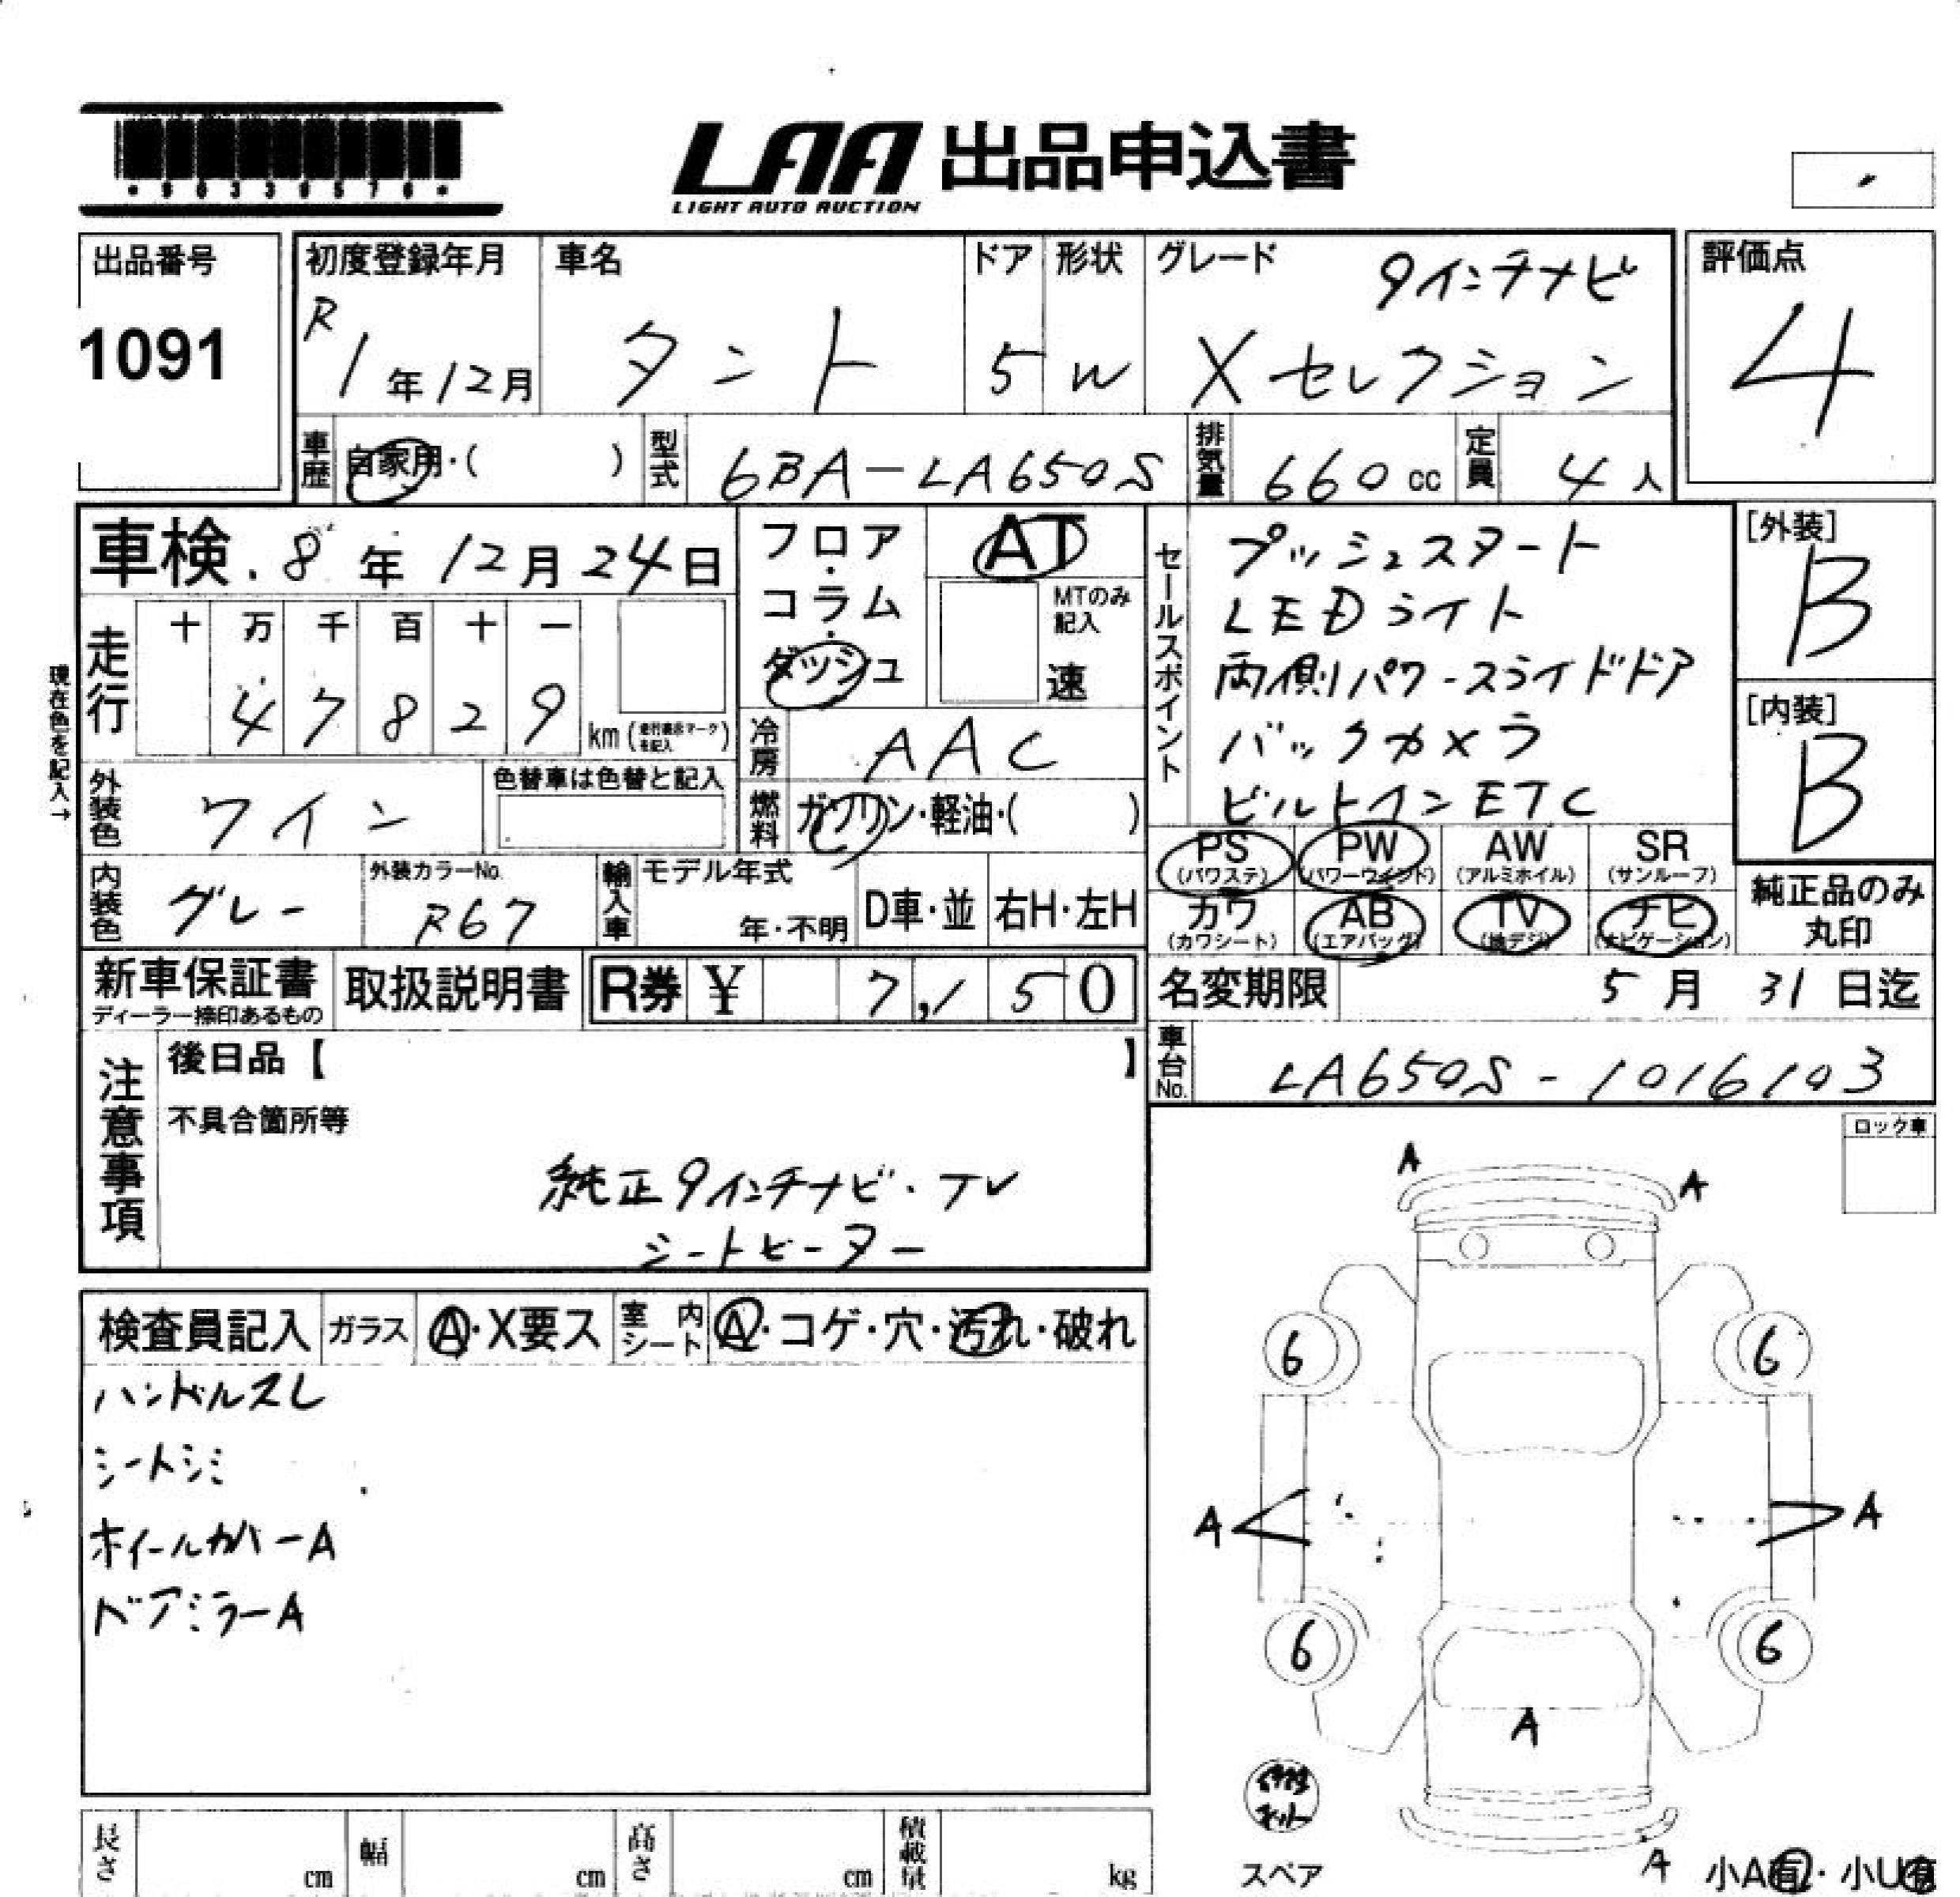 *90330576*
LAA 出品申込書
LIGHT AUTO AUCTION
出品番号
1091
初度登録年月
R1年12月
車名
タント
ドア
5
形状
W
グレード
9インチナビ
Xセレクション
評価点
4
車歴
自家用・( )
型式
6BA-LA650S
排気量
660cc
定員
4人
車検.8年12月24日
フロア・コラム・ダッシュ
AT
MTのみ記入
速
セールスポイント
プッシュスタート
LEDライト
両側パワースライドドア
バックカメラ
ビルトインETC
[外装]
B
[内装]
B
現在色を記入→
走行
十 万 千 百 十 一
4 7 8 2 9
km(走行表示マークを記入)
冷房
AAC
外装色
ワイン
色替車は色替と記入
燃料
ガソリン・軽油・( )
PS
(パワステ)
PW
(パワーウィンド)
AW
(アルミホイル)
SR
(サンルーフ)
カワ
(カワシート)
AB
(エアバッグ)
TV
(地デジ)
ナビ
(ナビゲーション)
純正品のみ
丸印
内装色
グレー
外装カラーNo.
R67
輸入車
モデル年式
年・不明
D車・並
右H・左H
新車保証書
ディーラー捺印あるもの
取扱説明書
R券 ¥ 7,150
名変期限 5月31日迄
注意事項
後日品【 】
不具合箇所等
純正9インチナビ・TV
シートヒーター
車台No.
LA650S-1016103
ロック車
検査員記入
ガラス
A・X要ス
室内シート
A・コゲ・穴・汚れ・破れ
ハンドルスレ
シートシミ
ホイールカバーA
ドアミラーA
A
A
6
6
A
A
6
6
A
A
スペア
小A有・小U有
長さ cm
幅 cm
高さ cm
積載量 kg